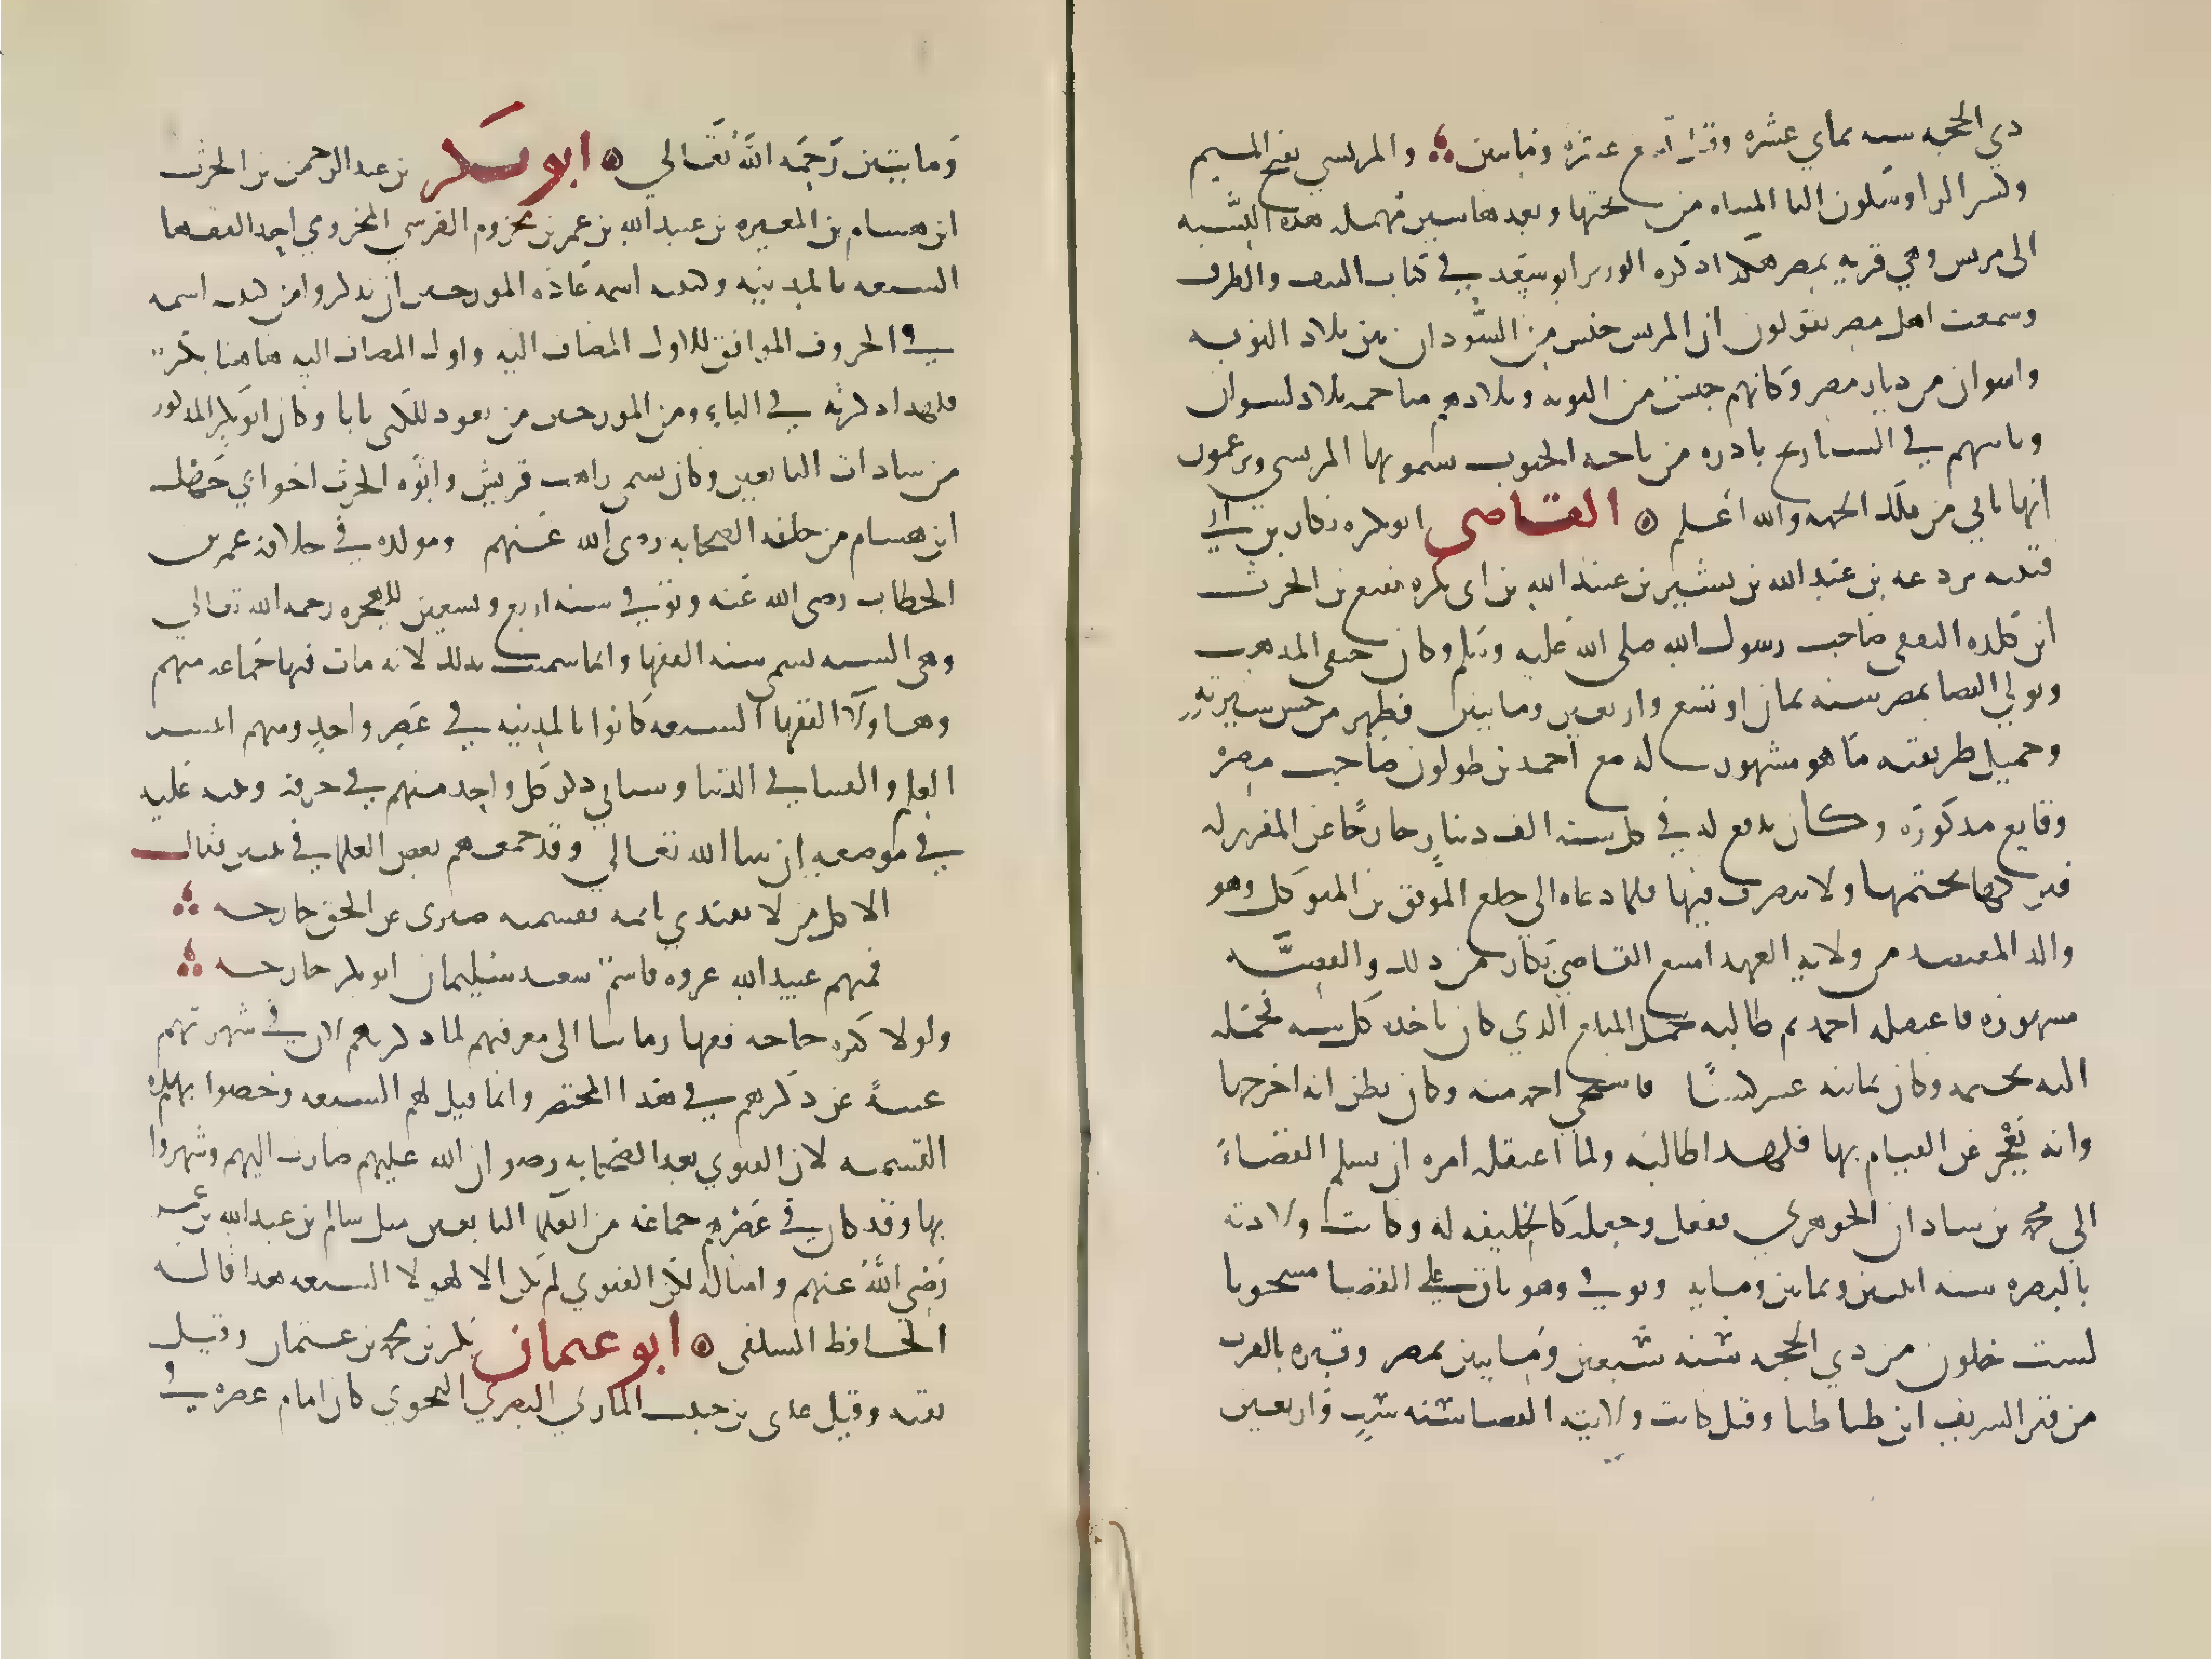 ذي الحجه سنه ثماني عشره وقيل تسع عشره ومايتين والمريسي بفتح الميم
وكسر الرا وسكون اليا المثناه من تحتها وبعدها سين مهمله هذه النسبه
الى مريس وهي قريه بمصر هكذا ذكره الوزير ابو سعد في كتاب النتف والطرف
وسمعت اهل مصر يقولون ان المريس جنس من السودان بين بلاد النوبه
واسوان من ديار مصر وكانهم جنس من النوبه وبلادهم متاخمه بلاد اسوان
وياتيهم في الشتا ريح بارده من ناحيه الجنوب يسمونها المريسي ويزعمون
انها تاتي من تلك الجهه والله اعلم القاضي ابو بكره بكار بن
قتيبه بن عبد الله بن بشير بن عبيد الله بن ابي بكره نفيع بن الحرث
ابن كلده الثقفي صاحب رسول الله صلى الله عليه وسلم وكان حنفي المذهب
وتولي القضا بمصر سنه ثمان او تسع واربعين ومايتين فظهر من حسن سيرته
وجميل طريقته ما هو مشهور وله مع احمد بن طولون صاحب مصر
وقايع مذكوره وكان يدفع له في كل سنه الف دينار خارجا عن المقرر له
فيتركها بختمها ولا يتصرف فيها فلما دعاه الى خلع الموفق بن المتوكل وهو
والد المعتضد من ولايه العهد امتنع القاضي بكار من ذلك والقصه
مشهوره فاعتقله احمد ثم طالبه بحمل المبلغ الذي كان ياخذه كل سنه فحمله
اليه بختمه وكان ثمانيه عشر كيسا فاستحيى احمد منه وكان يظن انه اخرجها
وانه يعجز عن القيام بها فلهذا طالبه ولما اعتقله امره ان يسلم القضاء
الى محمد بن شاذان الجوهري ففعل وجعله كالخليفه له وكانت ولادته
بالبصره سنه اثنين وثمانين ومايه وتوفي وهو باق على القضا مسجونا
لست خلون من ذي الحجه سنه سبعين ومايتين بمصر وقبره بالقرب
من قبر الشريف ابن طباطبا وقيل كانت ولايته القضا سنه ست واربعين
ومايتين رحمه الله تعالى ابو بكر بن عبد الرحمن بن الحرث
ابن هشام بن المغيره بن عبد الله بن عمر بن مخزوم القرشي المخزومي احد الفقها
السبعه بالمدينه وكنيته اسمه عاده المورخين ان يذكروا من كنيته اسمه
في الحروف الموافق للاول المضاف اليه واول المضاف اليه هاهنا بكر
فلهذا ذكرته في الباء ومن المورخين من يعود للكنى بابا وكان ابو بكر المذكور
من سادات التابعين وكان يسمى راهب قريش وابوه الحرث اخو ابي جهل
ابن هشام من جله الصحابه رضى الله عنهم ومولده في خلافه عمر بن
الخطاب رضى الله عنه وتوفي سنه اربع وتسعين للهجره رحمه الله تعالى
وهي السنه تسمى سنه الفقها وانما سميت بذلك لانه مات فيها جماعه منهم
وهاولا الفقها السبعه كانوا بالمدينه في عصر واحد ومنهم انتشر
العلم والفتيا في الدنيا وسياتي ذكر كل واحد منهم في حرفه وننبه عليه
في موضعه ان شا الله تعالى وقد جمعهم بعض العلما في بيتين فقال
الا كل من لا يقتدي بايمه فقسمته ضيزى عن الحق خارجه
فمنهم عبيد الله عروه قاسم سعيد سليمان ابو بكر خارجه
ولولا كثره حاجه فقها زماننا الى معرفتهم لما ذكرتهم لان في شهرتهم
غنيه عن ذكرهم في هذا المختصر وانما قيل لهم السبعه وخصوا بهذه
التسميه لان الفتوي بعد الصحابه رضوان الله عليهم صارت اليهم وشهروا
بها وقد كان في عصرهم جماعه من العلما التابعين مثل سالم بن عبد الله بن عمر
رضي الله عنهم وامثاله لكن الفتوي لم تكن الا لهولا السبعه هذا قاله
الحافظ السلفى ابو عثمان بكر بن محمد بن عثمان وقيل
بقيه وقيل عدى بن حبيب المازني البصري النحوي كان امام عصره في